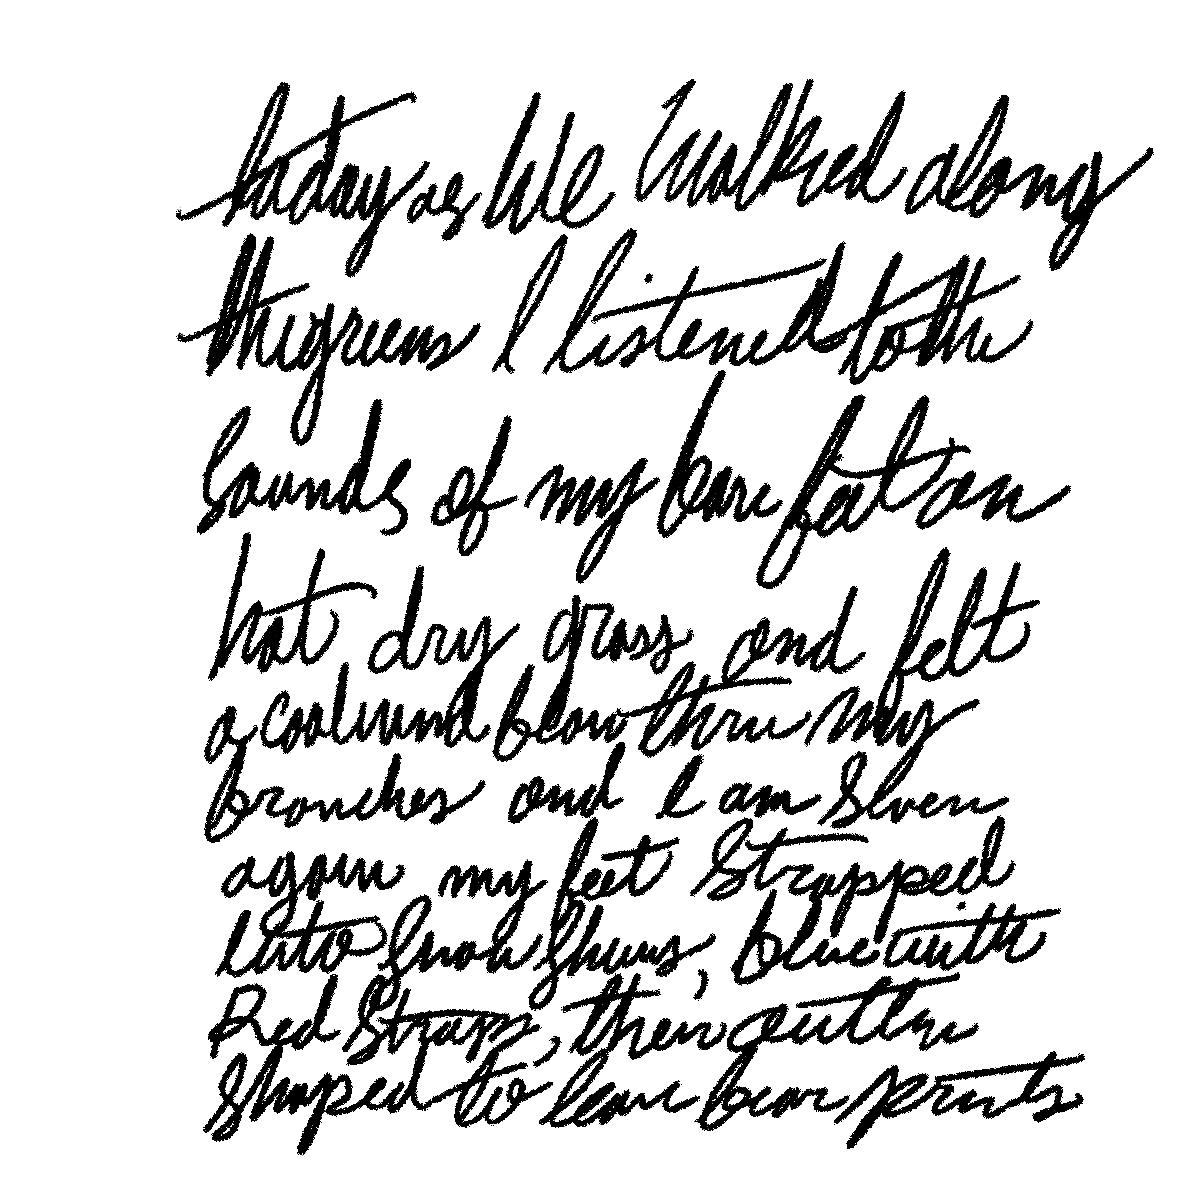 today as We Walked along
the greens I listened to the
Sounds of my bare feet on
hot dry grass and felt
a cool wind blow thru my
branches and I am Seven
again my feet Strapped
into Snow Shoes, blue with
Red Straps, their outline
Shaped to leave bear prints